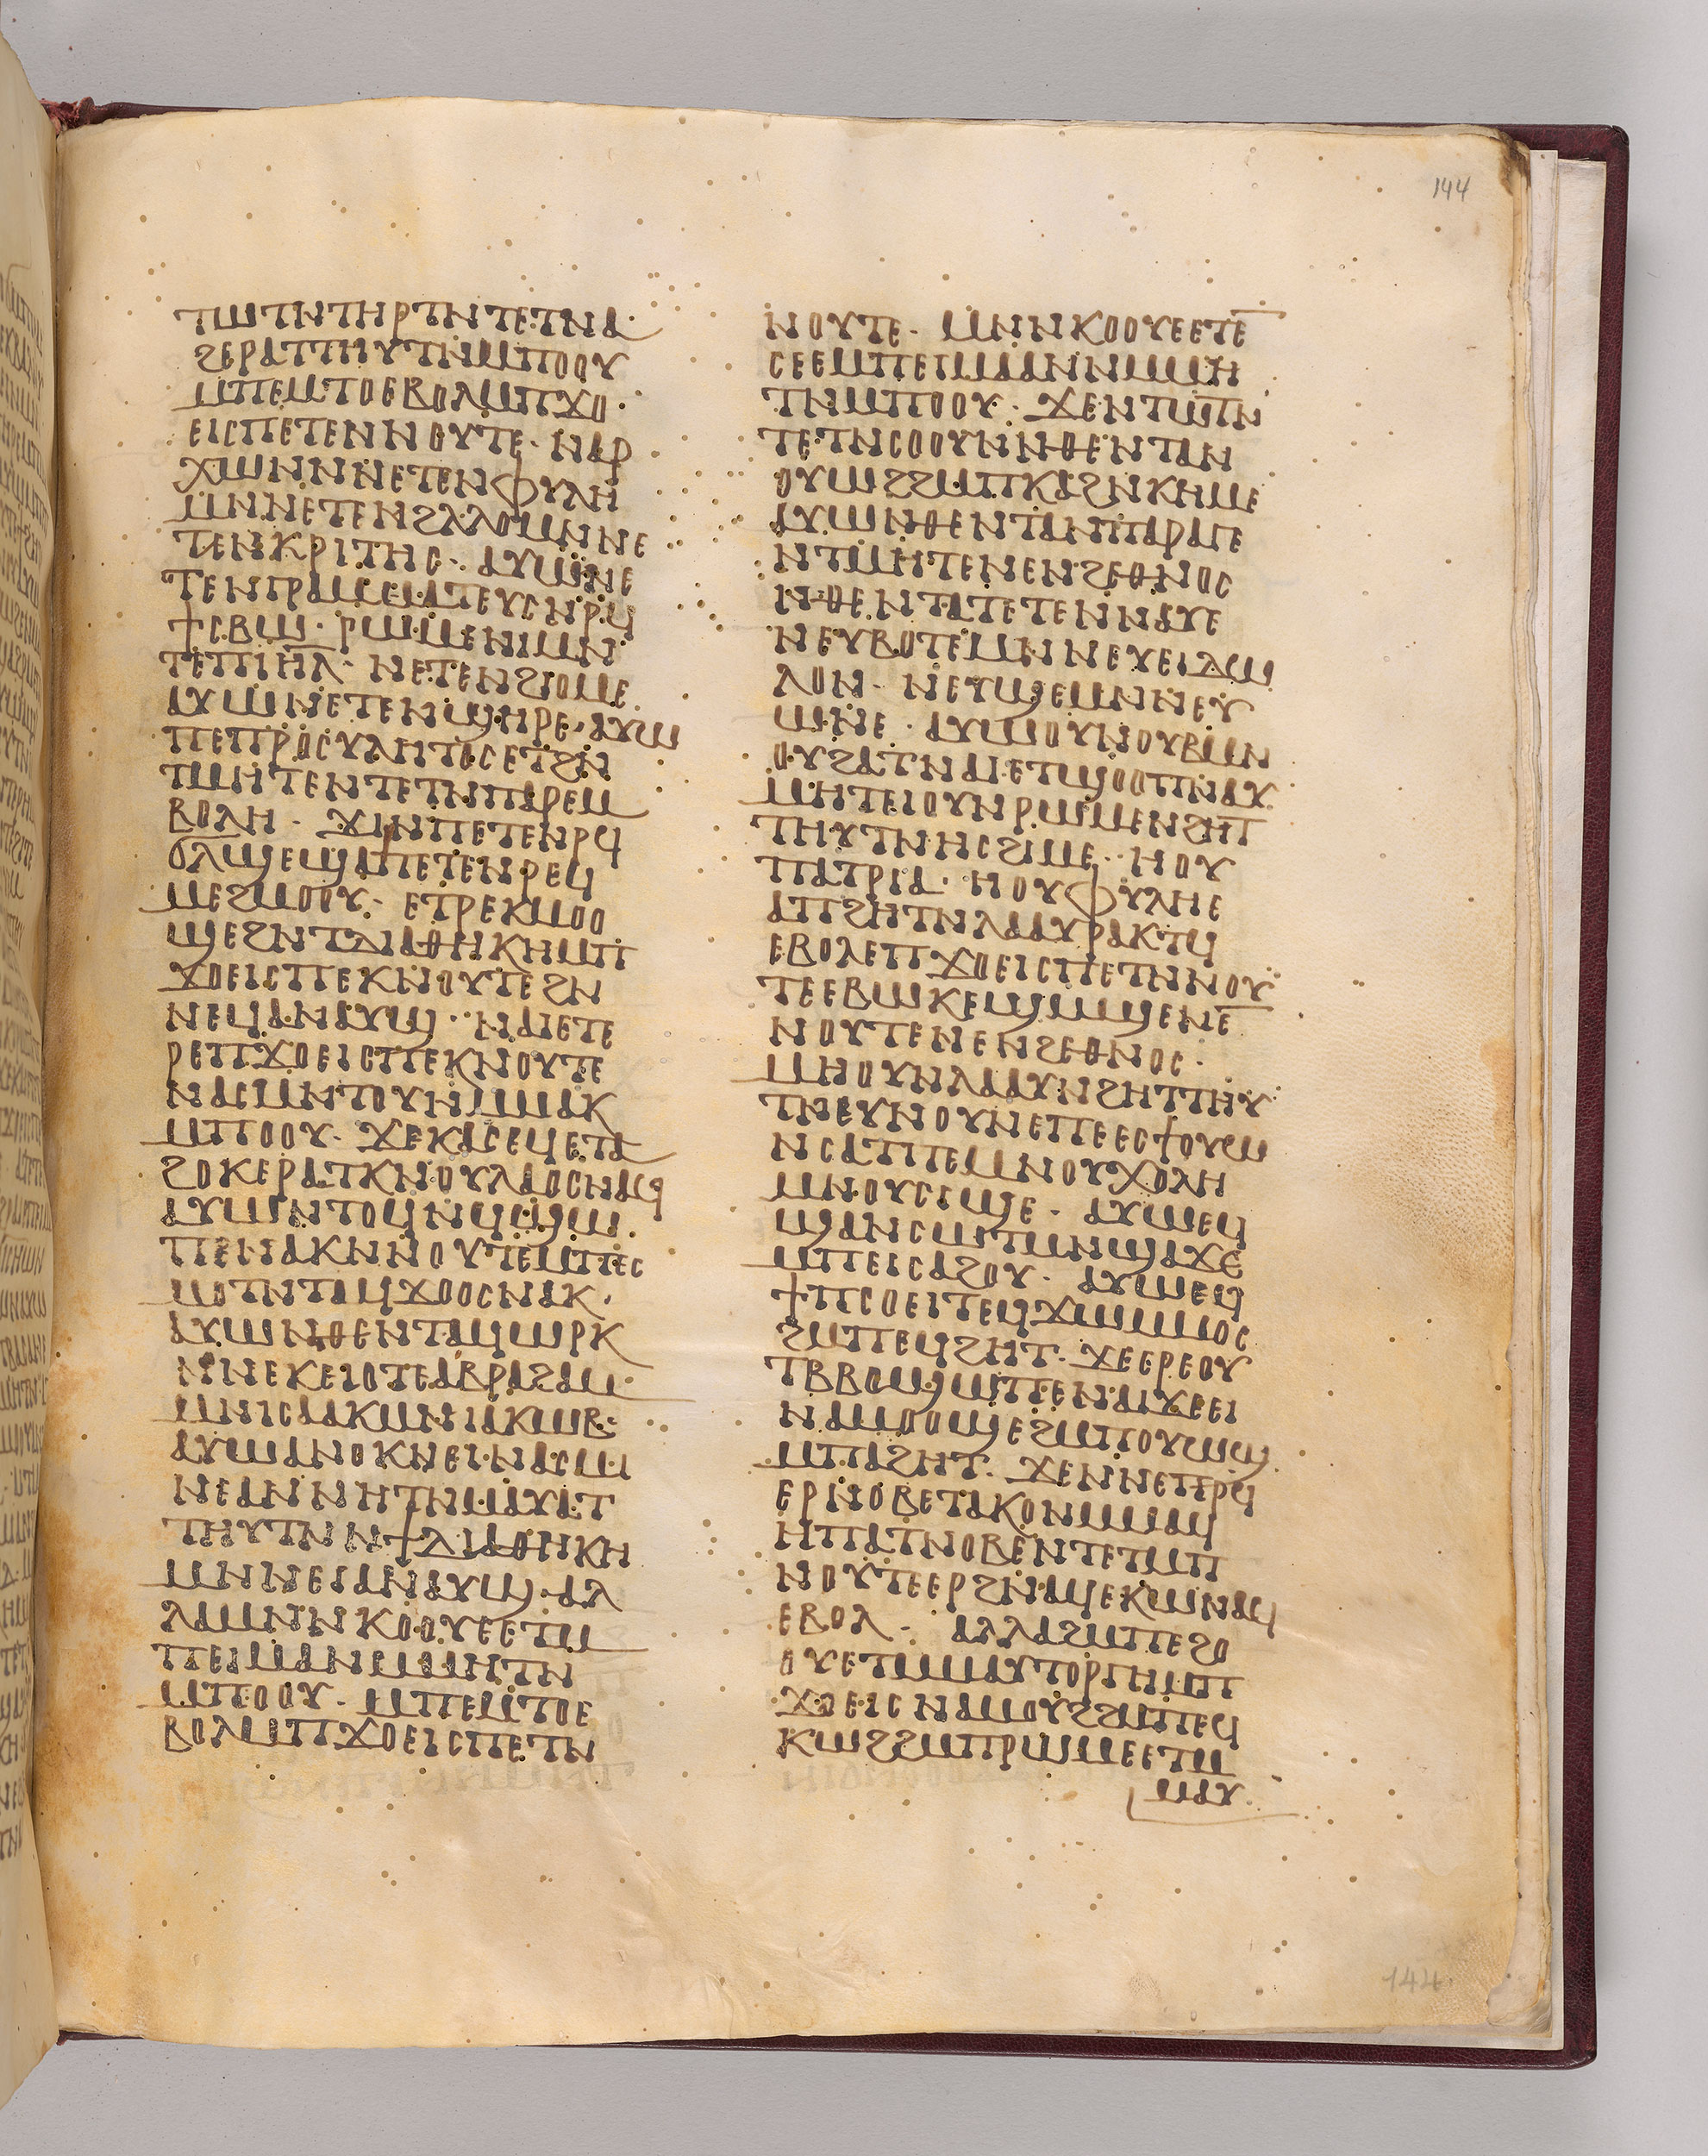 144
ⲧⲱⲧⲛⲧⲏⲣⲧⲛⲧⲉⲧⲛⲁ
ϩⲉⲣⲁⲧⲧⲏⲩⲧⲛⲙⲡⲟⲟⲩ
ⲙⲡⲉⲙⲧⲟⲉⲃⲟⲗⲙⲡϫⲟ·
ⲉⲓⲥⲡⲉⲧⲉⲛⲛⲟⲩⲧⲉ· ⲛⲁⲣ
ⲭⲱⲛⲛⲛⲉⲧⲉⲛⲫⲩⲗⲏ
ⲙⲛⲛⲉⲧⲉⲛϩⲗⲗⲟⲙⲛⲛⲉ
ⲧⲉⲛⲕⲣⲓⲧⲏⲥ· ⲁⲩⲱⲛⲉ
ⲧⲉⲛⲅⲣⲁⲙⲥⲉⲙⲁⲧⲉⲩⲥⲛⲣϥ
ϯⲥⲃⲱ· ⲣⲱⲙⲉⲛⲓⲙⲛ
ⲧⲉⲡⲓⲏⲗ· ⲛⲉⲧⲉⲛϩⲓⲟⲙⲉ
ⲁⲩⲱⲛⲉⲧⲉⲛϣⲏⲣⲉ· ⲁⲩⲱ
ⲡⲉⲡⲣⲟⲥⲩⲗⲏⲧⲟⲥⲉⲧϩⲛ
ⲧⲙⲏⲧⲉⲛⲧⲉⲧⲛⲡⲁⲣⲉⲙ
ⲃⲟⲗⲏ· ϫⲓⲛⲡⲉⲧⲉⲛⲣϥ
ϭⲗϣⲉϣⲁⲡⲉⲧⲉⲛⲣⲉϥ
ⲙⲉϩⲙⲟⲟⲩ· ⲉⲧⲣⲉⲕⲙⲟⲟ
ϣⲉϩⲛⲧⲇⲓⲁⲑⲏⲕⲏⲙⲡ
ϫⲟⲉⲓⲥⲡⲉⲕⲛⲟⲩⲧⲉϩⲛ
ⲛⲉϥⲁⲛⲁⲩϣ· ⲛⲁⲓⲉⲧⲉ
ⲣⲉⲡϫⲟⲉⲓⲥⲡⲉⲕⲛⲟⲩⲧⲉ
ⲛⲁⲥⲙⲛⲧⲟⲩⲛⲙⲙⲁⲕ
ⲙⲡⲟⲟⲩ· ϫⲉⲕⲁⲥⲉϥⲉⲧⲁ
ϩⲟⲕⲉⲣⲁⲧⲕⲛⲟⲩⲗⲁⲟⲥⲛⲁϥ
ⲁⲩⲱⲛⲧⲟϥⲛϥϣⲱ
ⲡⲉⲛⲁⲕⲛⲛⲟⲩⲧⲉⲙⲡⲉⲥ
ⲙⲟⲧⲛⲧⲁϥϫⲟⲟⲥⲛⲁⲕ·
ⲁⲩⲱⲛⲑⲉⲛⲧⲁϥⲱⲣⲕ
ⲛⲛⲉⲕⲉⲓⲟⲧⲉⲁⲃⲣⲁϩⲁⲙ
ⲙⲛⲓⲥⲁⲁⲕⲙⲛⲓⲁⲕⲱⲃ·
ⲁⲩⲱⲁⲛⲟⲕⲛⲉⲓⲛⲁⲥⲙⲓ
ⲛⲉⲁⲛⲛⲏⲧⲛⲙⲁⲩⲁⲧ
ⲧⲏⲩⲧⲛⲛϯⲇⲓⲁⲑⲏⲕⲏ
ⲙⲛⲛⲉⲓⲁⲛⲁⲩϣ· ⲁⲗ
ⲗⲁⲙⲛⲛⲕⲟⲟⲩⲉⲉⲧⲙ
ⲡⲉⲓⲙⲁⲛⲙⲙⲏⲧⲛ
ⲙⲡⲟⲟⲩ· ⲙⲡⲉⲙⲧⲟⲉ
ⲃⲟⲗⲙⲡϫⲟⲉⲓⲥⲡⲉⲧⲛ
ⲛⲟⲩⲧⲉ· ⲙⲛⲛⲕⲟⲟⲩⲉⲉⲧⲉ
ⲥⲉⲉⲙⲡⲉⲓⲙⲁⲁⲛⲛⲙⲙⲏ
ⲧⲛⲙⲡⲟⲟⲩ· ϫⲉⲛⲧⲱⲧⲛ
ⲧⲉⲧⲛⲥⲟⲟⲩⲛⲛⲑⲉⲛⲧⲁⲛ
ⲟⲩⲱϩϩⲙⲡⲕⲁϩⲛⲕⲏⲙⲉ
ⲁⲩⲱⲛⲑⲉⲛⲧⲁⲛⲡⲁⲣⲁⲅⲉ
ⲛⲧⲙⲏⲧⲉⲛⲉⲛϩⲉⲑⲛⲟⲥ
ⲛⲑⲉⲛⲧⲁⲧⲉⲧⲉⲛⲛⲁⲩⲉ
ⲛⲉⲩⲃⲟⲧⲉⲙⲛⲛⲉⲩⲉⲓⲇⲱ
ⲗⲟⲛ· ⲛⲉⲩϣⲉⲙⲛⲛⲉⲩ
ⲱⲛⲉ· ⲁⲩⲱⲟⲩⲛⲟⲩⲃⲙⲛ
ⲟⲩϩⲁⲧⲛⲁⲓⲉⲧϣⲟⲟⲡⲛⲁⲩ
ⲙⲏⲧⲉⲓⲟⲩⲛⲣⲱⲙⲉⲛϩⲏⲧ
ⲧⲏⲩⲧⲛⲏⲥϩⲓⲙⲉ· ⲏⲟⲩ
ⲡⲁⲧⲣⲓⲁ· ⲏⲟⲩⲫⲩⲗⲏⲉ
ⲁⲡϩⲏⲧⲛⲗⲁⲁⲩⲣⲁⲕⲧϥ
ⲉⲃⲟⲗⲉⲡϫⲟⲉⲓⲥⲡⲉⲧⲛⲛⲟⲩ
ⲧⲉⲉⲃⲱⲕⲉϣⲙϣⲉⲛⲉ
ⲛⲟⲩⲧⲉⲛⲉⲛϩⲉⲑⲛⲟⲥ·
ⲙⲏⲟⲩⲛⲗⲁⲁⲩⲛϩⲏⲧⲧⲏⲩ
ⲧⲛⲉⲩⲛⲟⲩⲛⲉⲡⲉⲉⲥϯⲟⲩⲱ
ⲛⲥⲁⲧⲡⲉⲙⲛⲟⲩⲭⲟⲗⲏ
ⲙⲛⲟⲩⲥⲓϣⲉ· ⲁⲩⲱⲉϥ
ϣⲁⲛⲥⲱⲧⲙⲛϣⲁϫⲉ
ⲙⲡⲉⲓⲥⲁϩⲟⲩ· ⲁⲩⲱⲉϥ
ϯⲡⲥⲟⲉⲓⲧⲉϥϫⲱⲙⲙⲟⲥ
ϩⲙⲡⲉϥϩⲏⲧ· ϫⲉⲉⲣⲉⲟⲩ
ⲧⲃⲃⲟϣⲱⲡⲉⲛⲁⲓϫⲉⲉⲓ
ⲛⲁⲙⲟⲟϣⲉϩⲙⲡⲟⲩⲱϣ
ⲙⲡⲁϩⲏⲧ· ϫⲉⲛⲛⲉⲡⲣϥ
ⲉⲣⲛⲟⲃⲉⲧⲁⲕⲟⲛⲙⲙⲁϥ
ⲙⲡⲁⲧⲛⲟⲃⲉⲛⲧⲉⲧⲙⲡ
ⲛⲟⲩⲧⲉⲉⲣϩⲛⲁϥⲉⲕⲱⲛⲁϥ
ⲉⲃⲟⲗ· ⲁⲗⲗⲁϩⲙⲡⲉϩⲟ
ⲟⲩⲉⲧⲙⲙⲁⲩⲧⲟⲣⲅⲏⲙⲡ
ϫⲟⲉⲓⲥⲛⲁⲙⲟⲩϩϩⲙⲡⲉϥ
ⲕⲱϩϩⲙⲡⲣⲱⲙⲉⲉⲧⲙ
ⲙⲁⲩ·
144